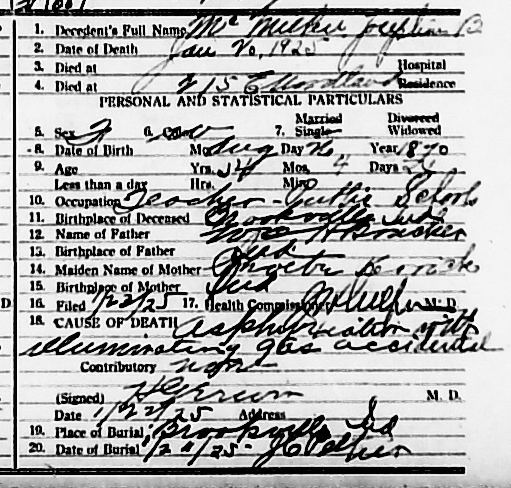 1. Decedent's Full Name Josephine B
2. Date of Death Jan 20, 1925
3. Died at Hospital
4. Died at 215 E Woodland Residence
PERSONAL AND STATISTICAL PARTICULARS
Married Divorced
5. Sex F 6. Color W 7. Single Widowed
8. Date of Birth Mo. Aug Day 26 Year 1870
9. Age Yrs. 54 Mos. 4 Days
Less than a day Hrs. Min.
10. Occupation Teacher - Public Schools
11. Birthplace of Deceased Brookville Ind
12. Name of Father Wm H Bracken
13. Birthplace of Father Ind
14. Maiden Name of Mother Phoebe
15. Birthplace of Mother Ind
16. Filed 1/22/25 17. Health Commissioner M. D.
18. CAUSE OF DEATH Asphyxiation with
illuminating gas accidental
Contributory none
(Signed) M. D.
Date 1/22/25 Address
19. Place of Burial Brookville Ind
20. Date of Burial
D